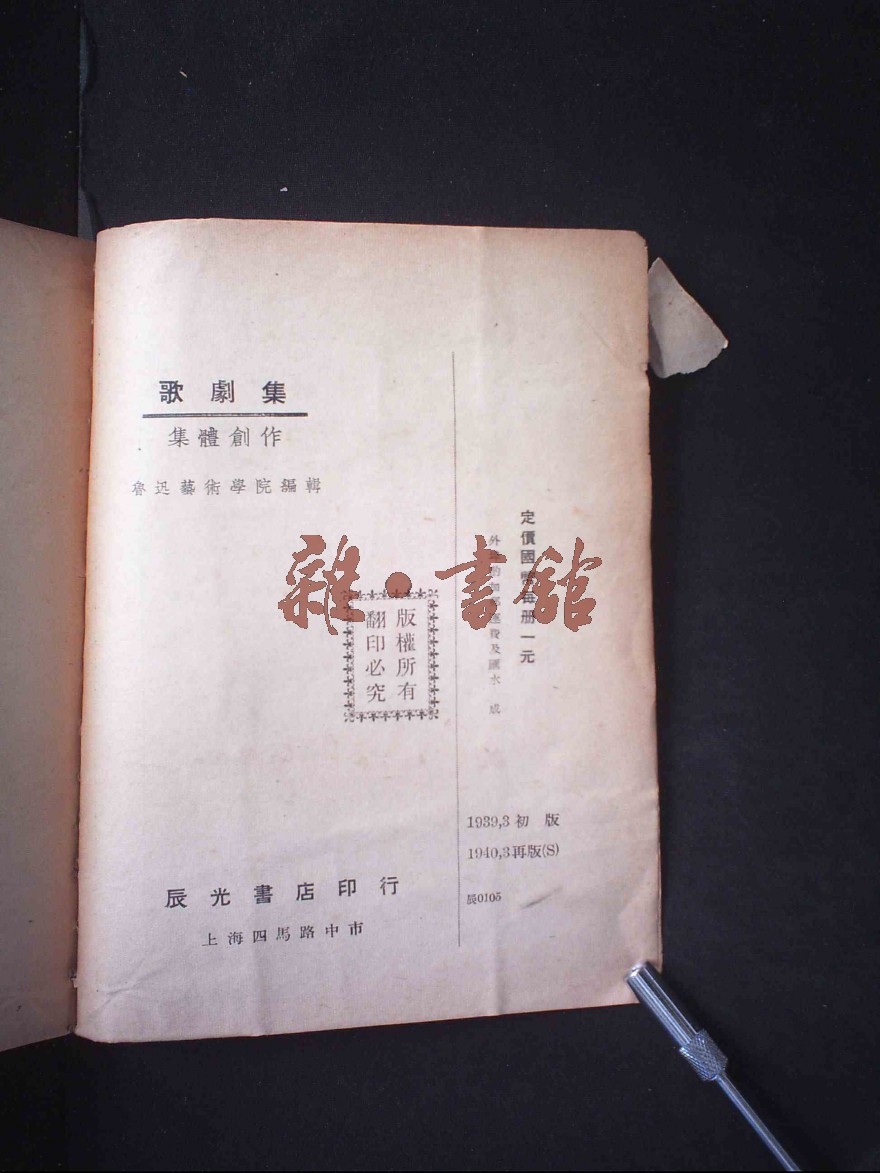 歌劇集
集體創作
魯迅藝術學院編輯
雜·書館
版權所有
翻印必究
定價國幣每册一元
外埠酌加運費及匯水 成
1939,3 初 版
1940,3 再版(S)
辰0105
辰光書店印行
上海四馬路中市